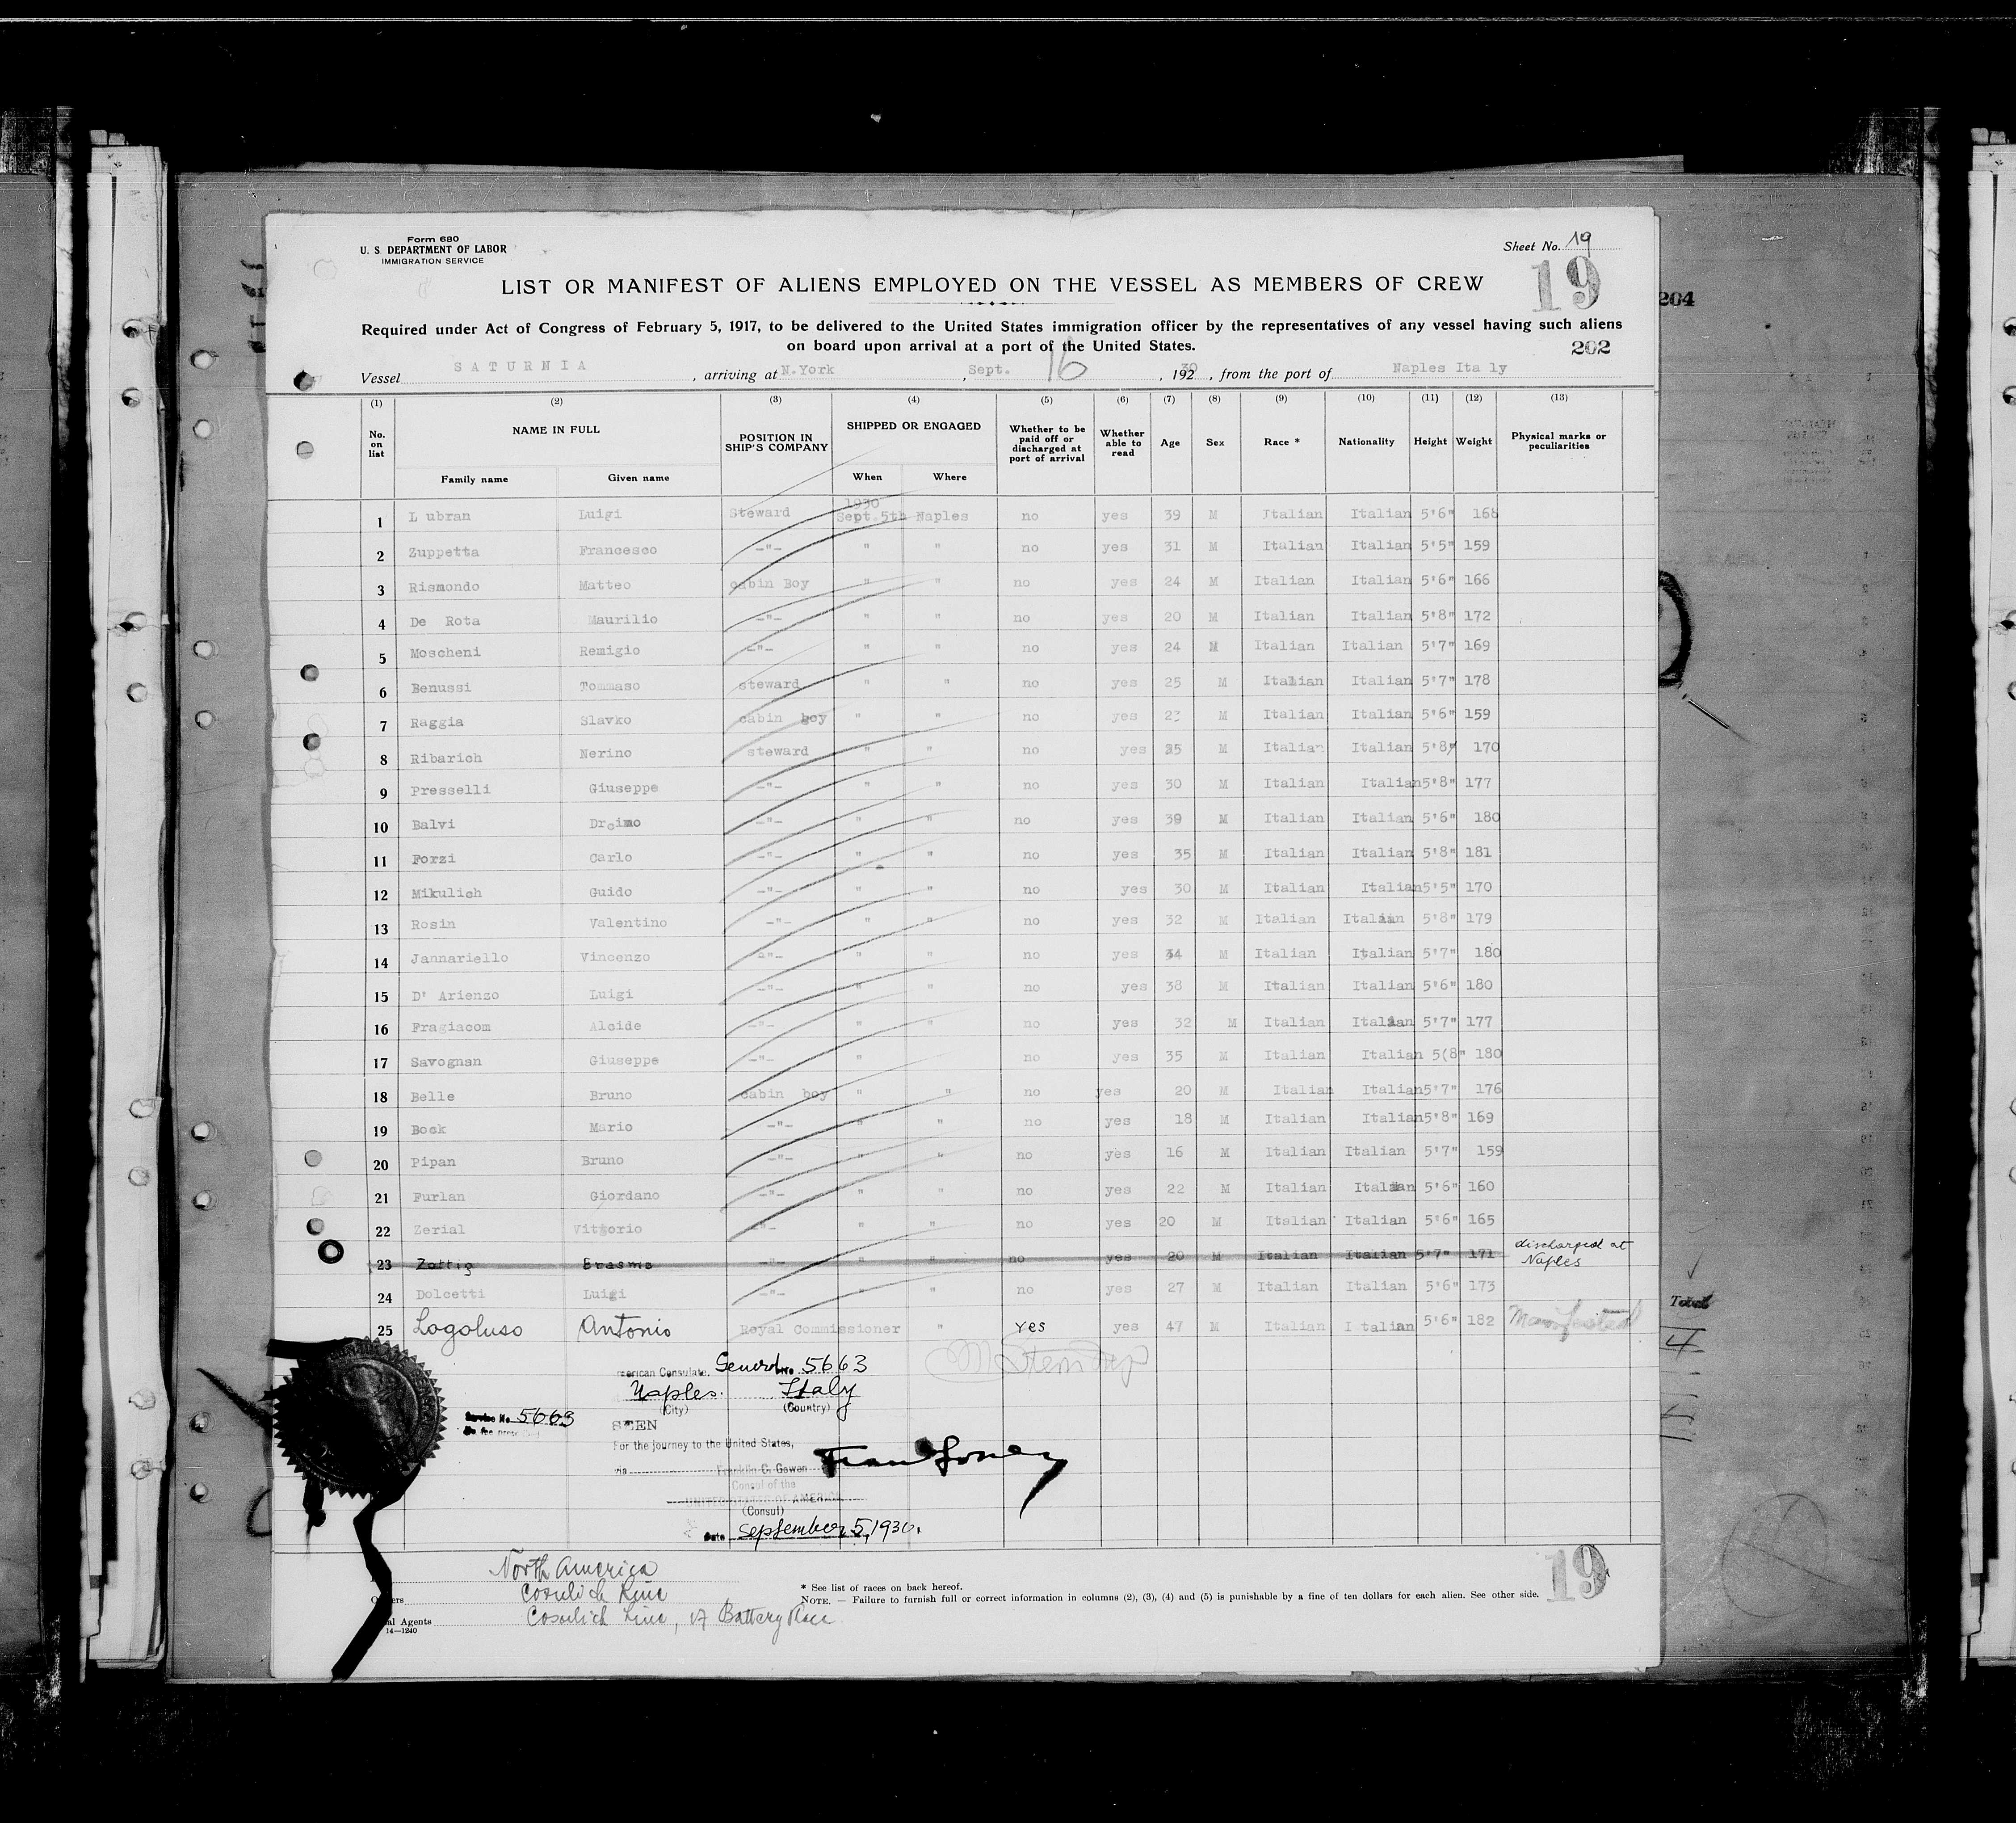 Form 680
U. S. DEPARTMENT OF LABOR
IMMIGRATION SERVICE
Sheet No. 19
19
LIST OR MANIFEST OF ALIENS EMPLOYED ON THE VESSEL AS MEMBERS OF CREW
Required under Act of Congress of February 5, 1917, to be delivered to the United States immigration officer by the representatives of any vessel having such aliens
on board upon arrival at a port of the United States.
204
202
Vessel SATURNIA, arriving at N.York, Sept. 16, 1930, from the port of Naples Ita ly
(1) (2) (3) (4) (5) (6) (7) (8) (9) (10) (11) (12) (13)
No. on list NAME IN FULL Family name Given name POSITION IN SHIP'S COMPANY SHIPPED OR ENGAGED When Where Whether to be paid off or discharged at port of arrival Whether able to read Age Sex Race * Nationality Height Weight Physical marks or peculiarities
1930
1 L ubran Luigi Steward Sept.5th Naples no yes 39 M Italian Italian 5'6" 168
2 Zuppetta Francesco -"- " " no yes 31 M Italian Italian 5'5" 159
3 Rismondo Matteo cabin Boy " " no yes 24 M Italian Italian 5'6" 166
4 De Rota Maurilio -"- " " no yes 20 M Italian Italian 5'8" 172
5 Moscheni Remigio -"- " " no yes 24 M Italian Italian 5'7" 169
6 Benussi Tommaso steward " " no yes 25 M Italian Italian 5'7" 178
7 Raggia Slavko cabin boy " " no yes 23 M Italian Italian 5'6" 159
8 Ribarich Nerino steward " " no yes 35 M Italian Italian 5'8" 170
9 Presselli Giuseppe -"- " " no yes 30 M Italian Italian 5'8" 177
10 Balvi -"- " " no yes 39 M Italian Italian 5'6" 180
11 Forzi Carlo -"- " " no yes 35 M Italian Italian 5'8" 181
12 Mikulich Guido -"- " " no yes 30 M Italian Italian 5'5" 170
13 Rosin Valentino -"- " " no yes 32 M Italian Italian 5'8" 179
14 Jannariello Vincenzo -"- " " no yes 34 M Italian Italian 5'7" 180
15 D' Arienzo Luigi -"- " " no yes 38 M Italian Italian 5'6" 180
16 Fragiacom Alcide -"- " " no yes 32 M Italian Italian 5'7" 177
17 Savognan Giuseppe -"- " no yes 35 M Italian Italian 5(8" 180
18 Belle Bruno cabin boy " " no yes 20 M Italian Italian 5'7" 176
19 Bock Mario -"- " " no yes 18 M Italian Italian 5'8" 169
20 Pipan Bruno -"- " " no yes 16 M Italian Italian 5'7" 159
21 Furlan Giordano -"- " " no yes 22 M Italian Italian 5'6" 160
22 Zerial Vittorio -"- " " no yes 20 M Italian Italian 5'6" 165
23 Zottig Erasmo -"- " " no yes 20 M Italian Italian 5'7" 171 discharged at Naples
24 Dolcetti Luigi -"- " " no yes 27 M Italian Italian 5'6" 173
25 Logoluso Antonio Royal Commissioner " yes yes 47 M Italian Italian 5'6" 182 Manifested
Total
4
American Consulate General No. 5663
Naples. Italy
(City) (Country)
Service No. 5663
No fee
SEEN
For the journey to the United States,
via
Franklin C. Gowen
Consul of the
UNITED STATES OF AMERICA
(Consul)
Date September 5, 1930.
North America
Owners Cosulich Line
Local Agents Cosulich Line, 17 Battery Place
14—1240
* See list of races on back hereof.
NOTE. — Failure to furnish full or correct information in columns (2), (3), (4) and (5) is punishable by a fine of ten dollars for each alien. See other side.
19